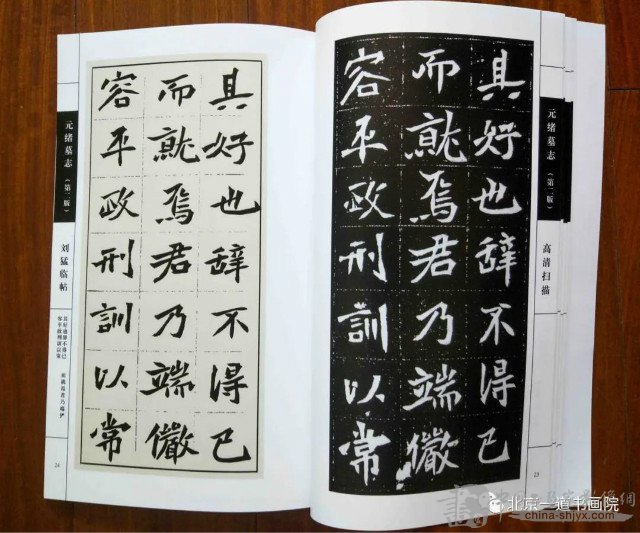 元绪墓志（第二版）
高清扫描
具好也辞不得已
而就焉君乃端儼
容平政刑訓以常
23
具好也辞不得已
而就焉君乃端儼
容平政刑訓以常
元绪墓志（第二版）
刘猛临帖
24
北京一道书画院
china-shjyx.com